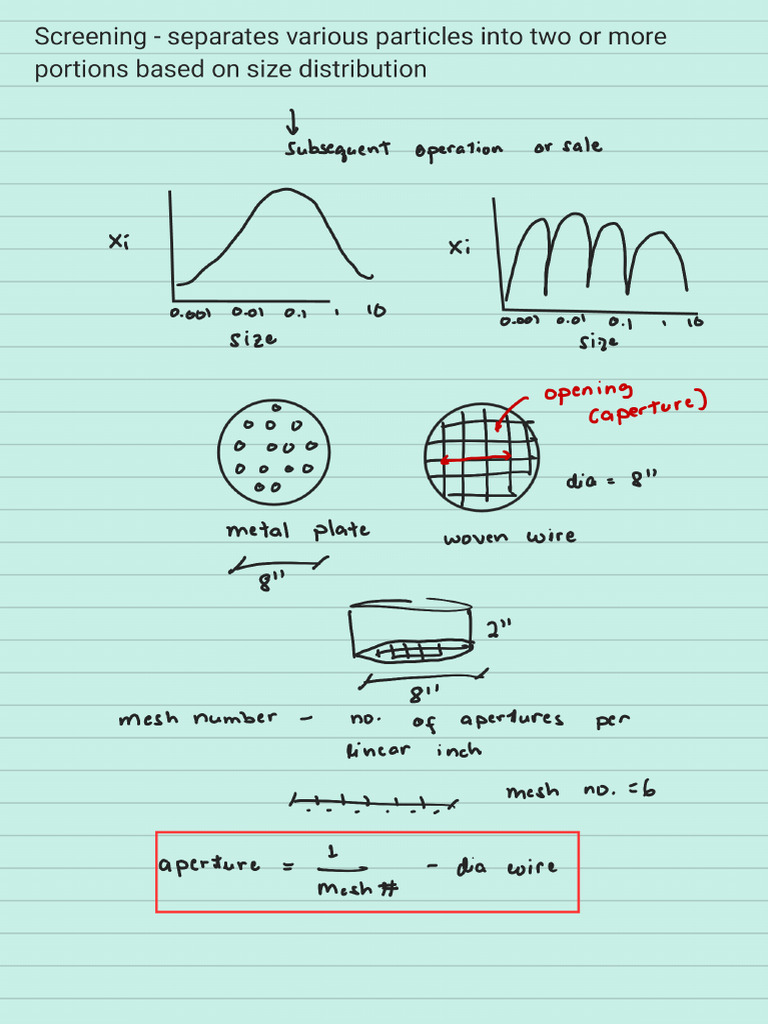 Screening - separates various particles into two or more
portions based on size distribution
subsequent operation or sale
xi
0.001 0.01 0.1 1 10
size
xi
0.001 0.01 0.1 1 10
size
opening
(aperture)
dia = 8"
metal plate
8"
woven wire
2"
8"
mesh number - no. of apertures per
linear inch
mesh no. = 6
aperture = 1 / mesh # - dia wire